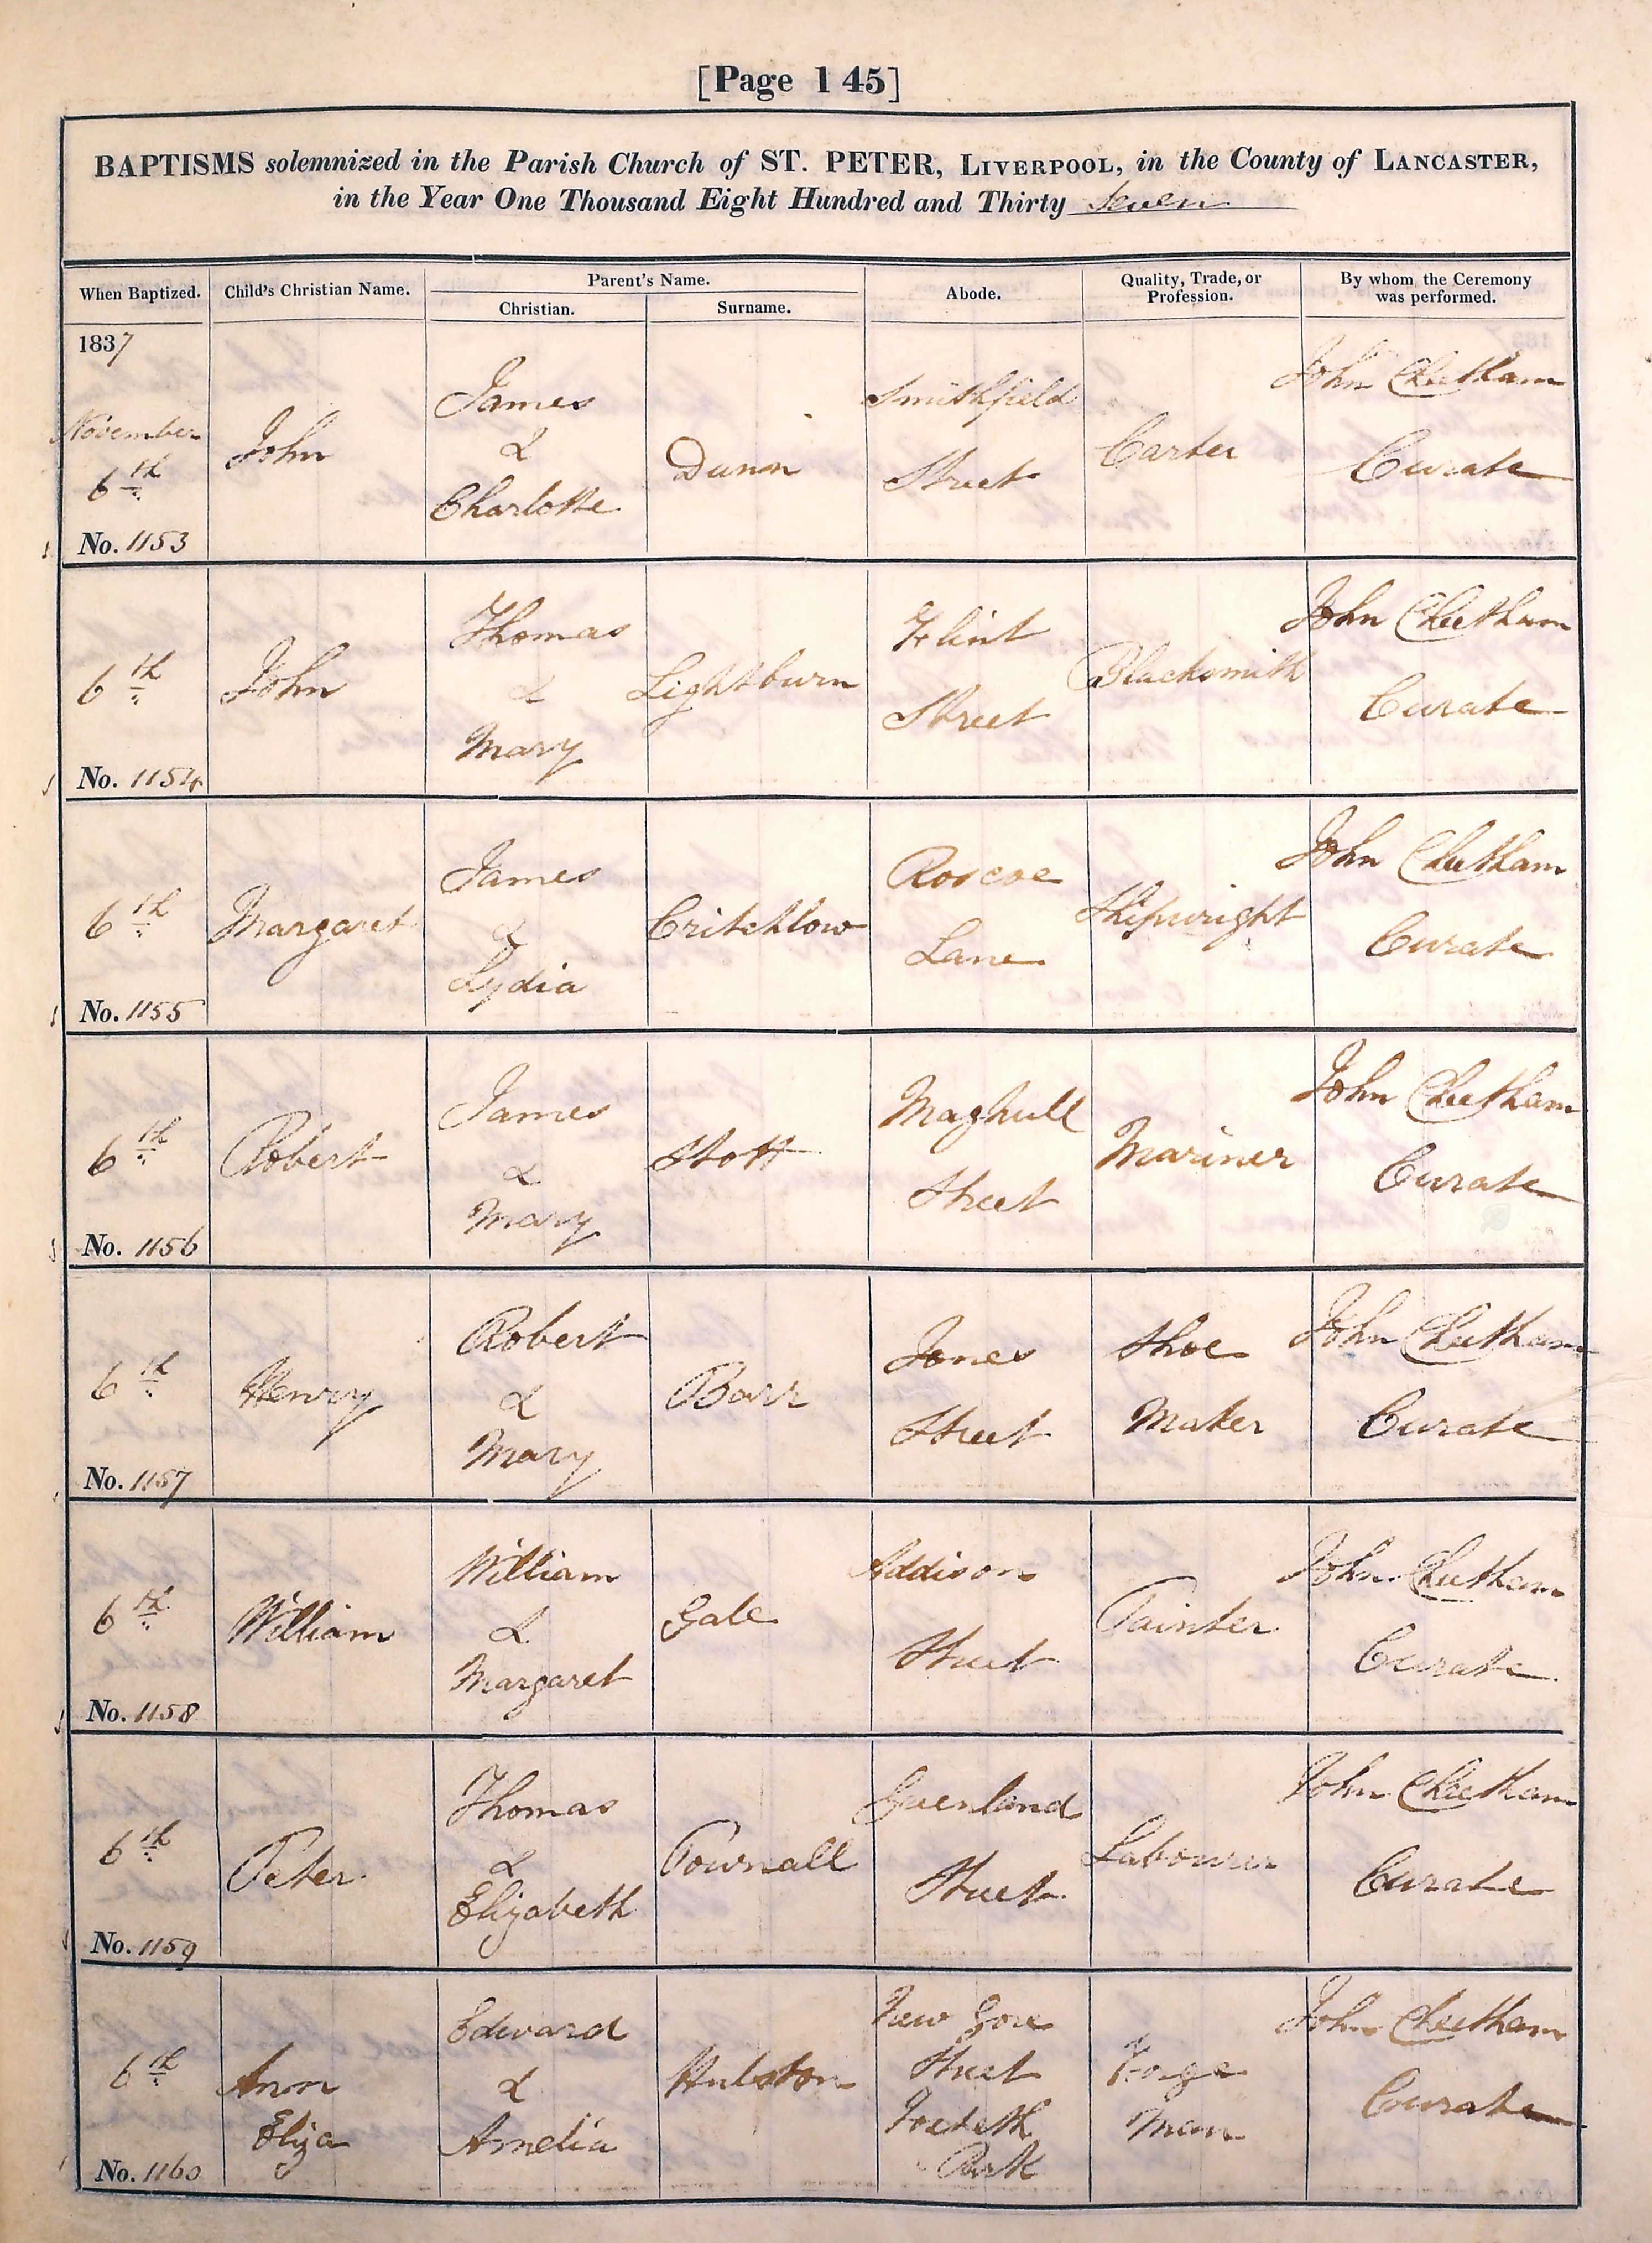 [Page 145]
BAPTISMS solemnized in the Parish Church of ST. PETER, LIVERPOOL, in the County of LANCASTER,
in the Year One Thousand Eight Hundred and Thirty Seven
When Baptized.
Child's Christian Name.
Parent's Name.
Christian.
Surname.
Abode.
Quality, Trade, or
Profession.
By whom the Ceremony
was performed.
1837
November
6th
No. 1153
John
James
&
Charlotte
Dunn
Smithfield
Street
Carter
John Cheetham
Curate
6th
No. 1154
John
Thomas
&
Mary
Lightburn
Flint
Street
Blacksmith
John Cheetham
Curate
6th
No. 1155
Margaret
James
&
Lydia
Critchlow
Roscoe
Lane
Shipwright
John Cheetham
Curate
6th
No. 1156
Robert
James
&
Mary
Stott
Maghull
Street
Mariner
John Cheetham
Curate
6th
No. 1157
Henry
Robert
&
Mary
Barr
Jones
Street
Shoe
Maker
John Cheetham
Curate
6th
No. 1158
William
William
&
Margaret
Gale
Addison
Street
Painter
John Cheetham
Curate
6th
No. 1159
Peter
Thomas
&
Elizabeth
Pownall
Greenland
Street
Labourer
John Cheetham
Curate
6th
No. 1160
Ann
Eliza
Edward
&
Amelia
Hulston
New Gore
Street
Toxteth
Park
Forge
Man
John Cheetham
Curate